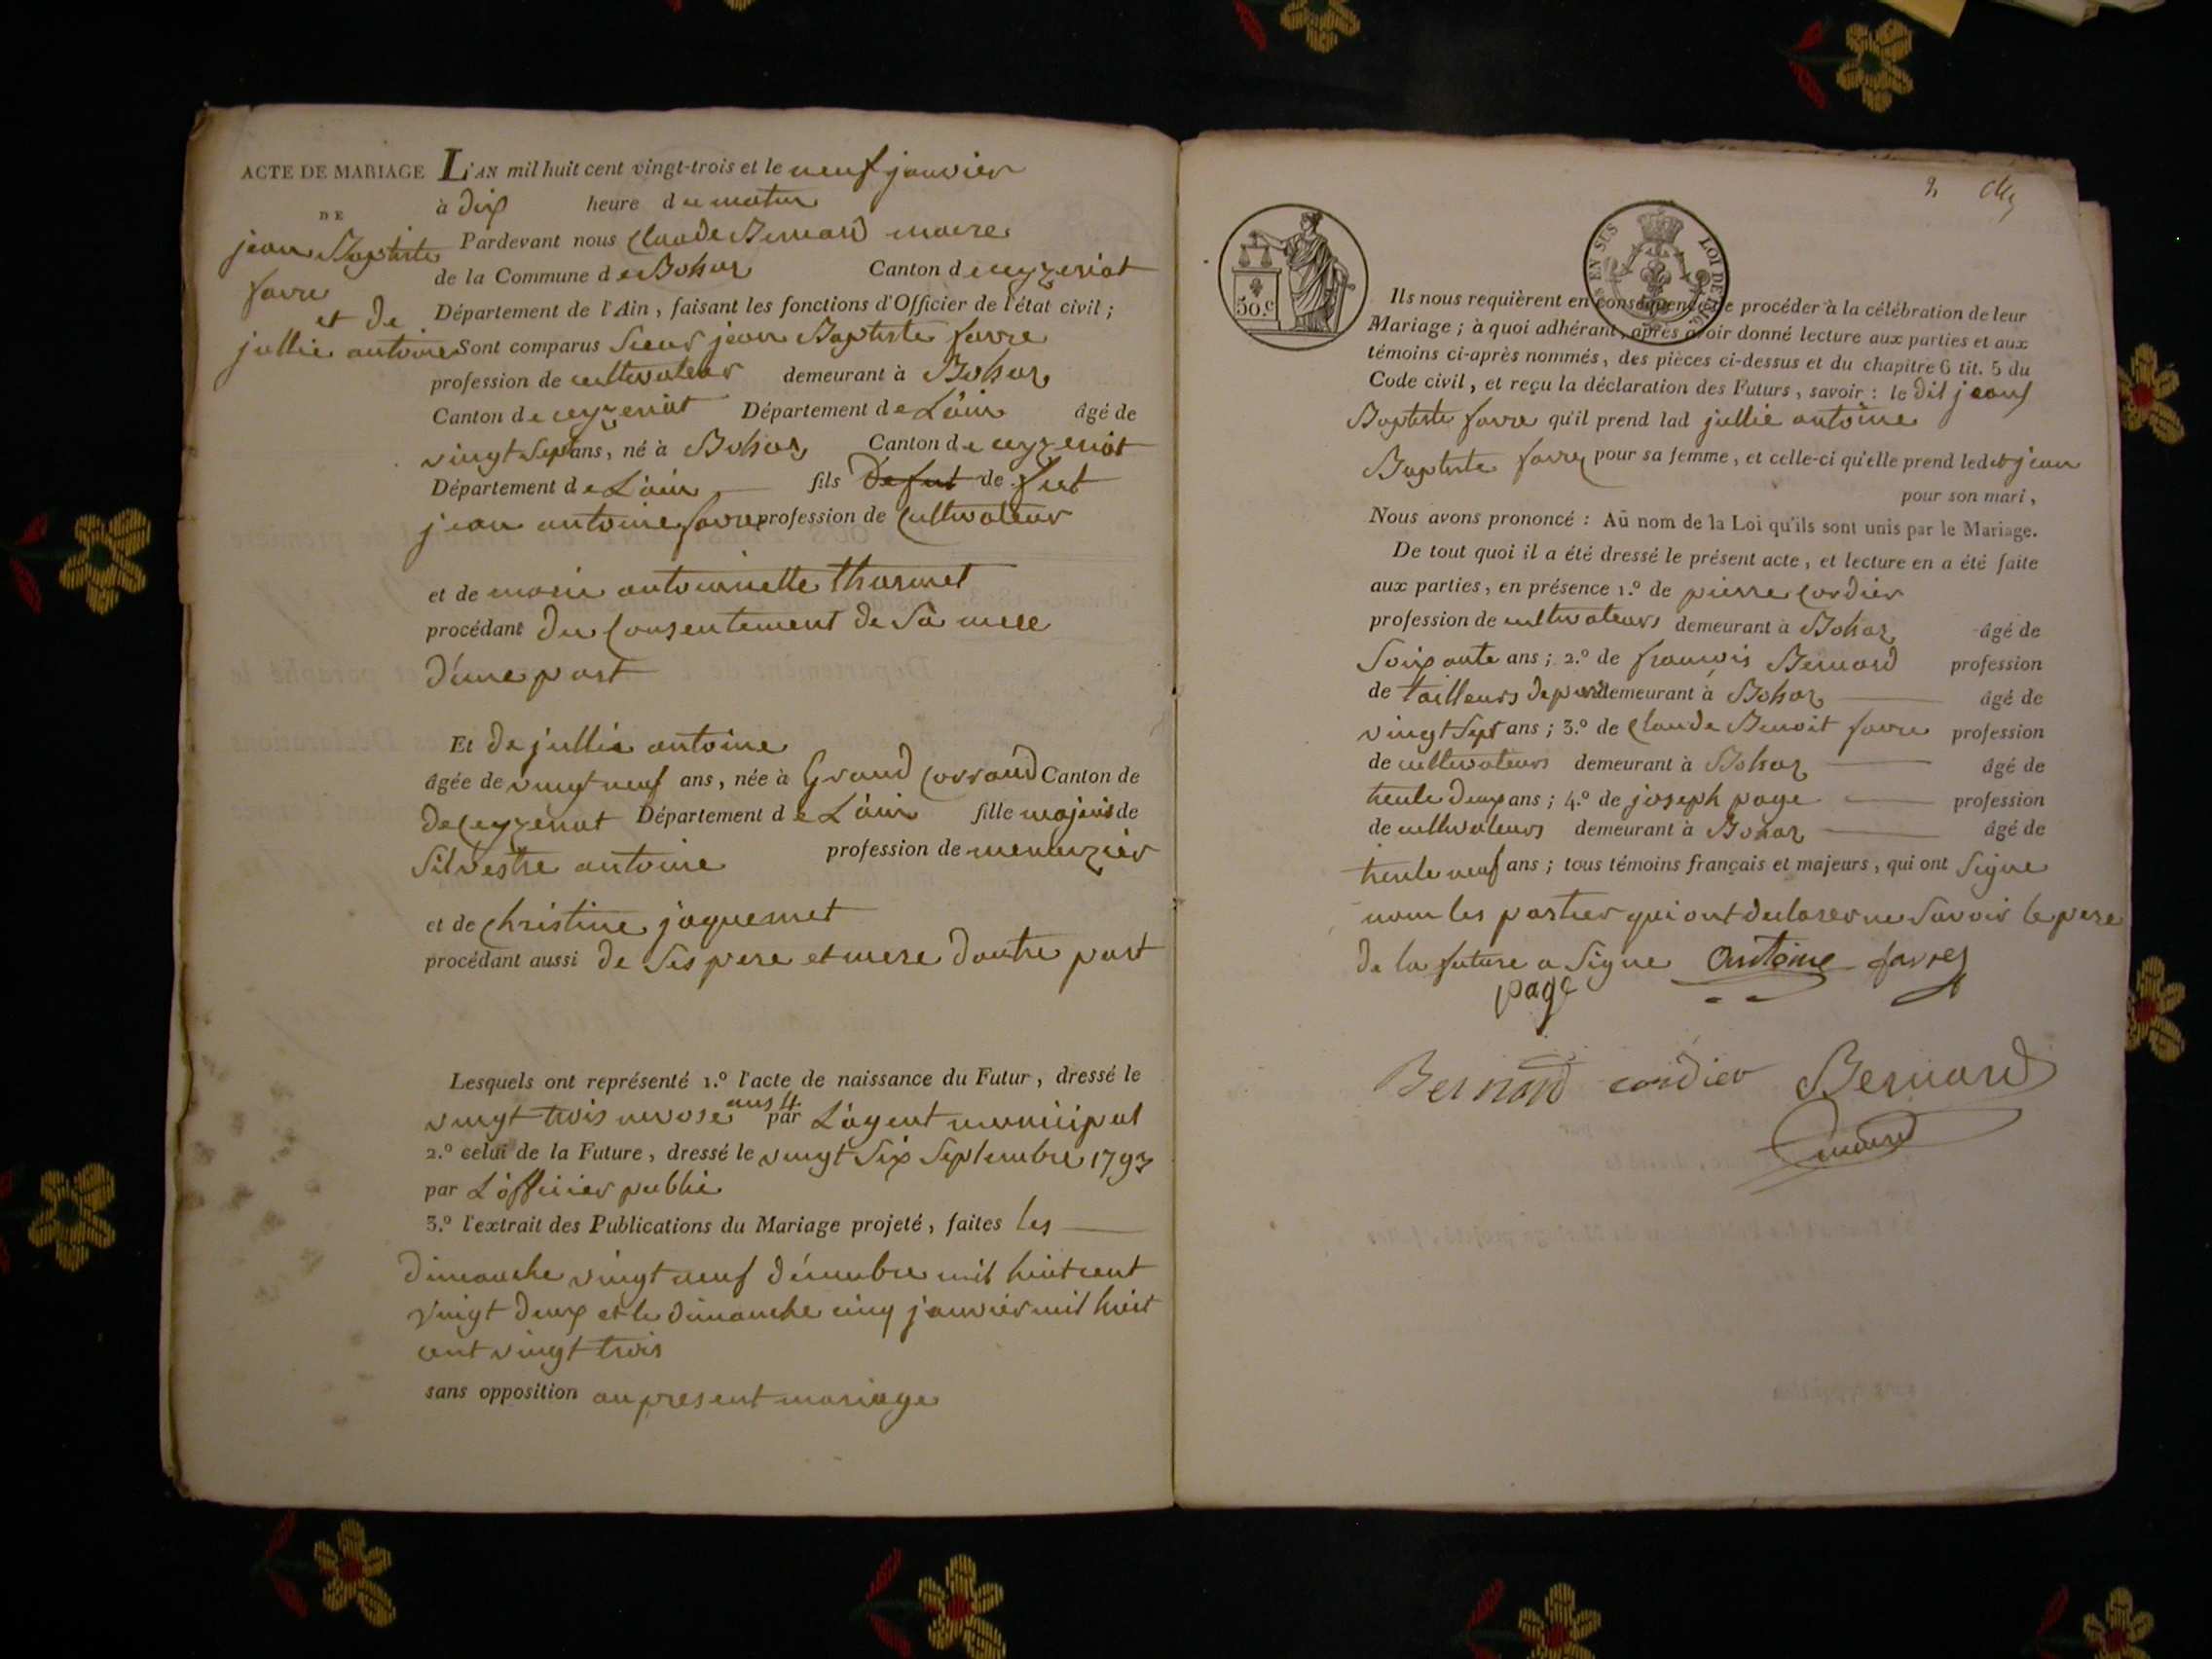 ACTE DE MARIAGE
DE
jean Baptiste
favre
et de
jullie antoine
L'AN mil huit cent vingt-trois et le neuf janvier
à dix heure du matin
Pardevant nous Claude Bernard maire
de la Commune de Bohas Canton de ceyzeriat
Département de l'Ain, faisant les fonctions d'Officier de l'état civil;
Sont comparus Sieur jean Baptiste favre
profession de cultivateur demeurant à Bohas
Canton de ceyzeriat Département de L'ain âgé de
vingt Sept ans, né à Bohas Canton de ceyzeriat
Département de L'ain fils Defunt de feut
jean antoine favre profession de Cultivateur
et de marie antoinette tharmet
procédant du Consentement de Sa mere
d'une part
Et de jullie antoine
âgée de vingt neuf ans, née à Grand Corrand Canton de
de Ceyzeriat Département de L'ain fille majeure de
Silvestre antoine profession de menuzier
et de Christine jaquemet
procédant aussi de Ses pere et mere dautre part
Lesquels ont représenté 1.º l'acte de naissance du Futur, dressé le
vingt trois nivose ans 4 par L'agent municipal
2.º celui de la Future, dressé le vingt Six Septembre 1793
par L'officier public
3.º l'extrait des Publications du Mariage projeté, faites les
dimanche vingt neuf décembre mil huit cent
vingt deux et le dimanche cinq janvier mil huit
cent vingt trois
sans opposition au present mariage
2
50.c
EN SUS LOI DE
Ils nous requièrent en conséquence de procéder à la célébration de leur
Mariage; à quoi adhérant, après avoir donné lecture aux parties et aux
témoins ci-après nommés, des pièces ci-dessus et du chapitre 6 tit. 5 du
Code civil, et reçu la déclaration des Futurs, savoir: le dit jean
Baptiste favre qu'il prend lad jullie antoine
pour sa femme, et celle-ci qu'elle prend ledit jean
Baptiste favre pour son mari,
Nous avons prononcé: Au nom de la Loi qu'ils sont unis par le Mariage.
De tout quoi il a été dressé le présent acte, et lecture en a été faite
aux parties, en présence 1.º de pierre Cordier
profession de cultivateur demeurant à Bohas âgé de
Soixante ans; 2.º de francois Bernard profession
de tailleurs de pierre demeurant à Bohas âgé de
vingt Sept ans; 3.º de Claude Benoit favre profession
de cultivateurs demeurant à Bohas âgé de
trente deux ans; 4.º de joseph page profession
de cultivateurs demeurant à Bohas âgé de
trente neuf ans; tous témoins français et majeurs, qui ont Signe
nom les parties qui ont declarer ne Savoir le pere
de la future a Signe Antoine favre
page
Bernard cordier Bernard